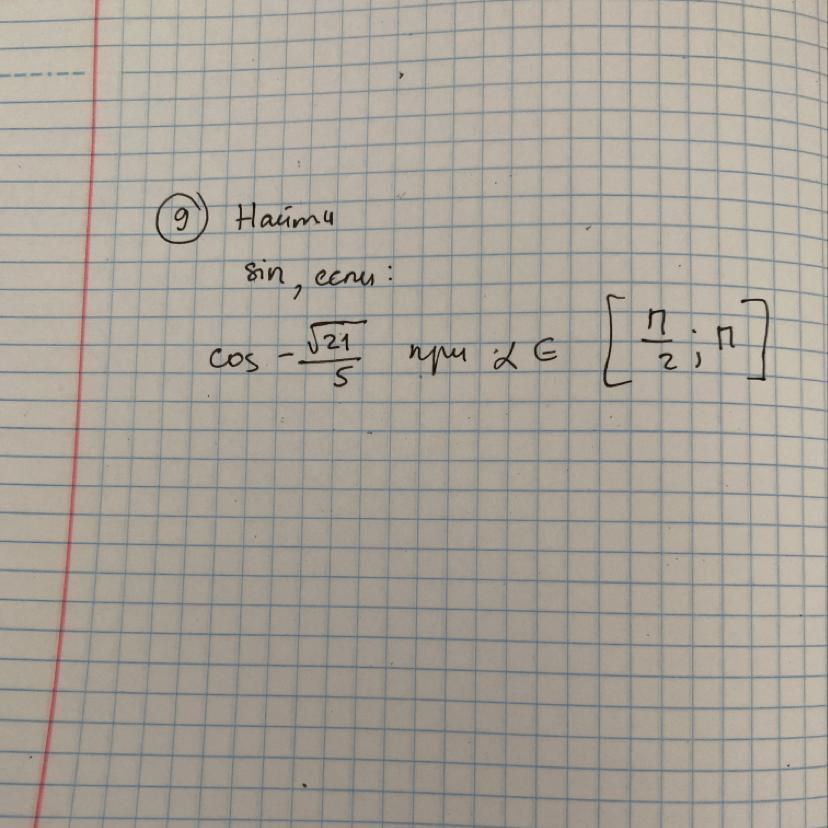 9) Найти
sin, если:
cos -√21/5 при α ∈ [π/2; π]